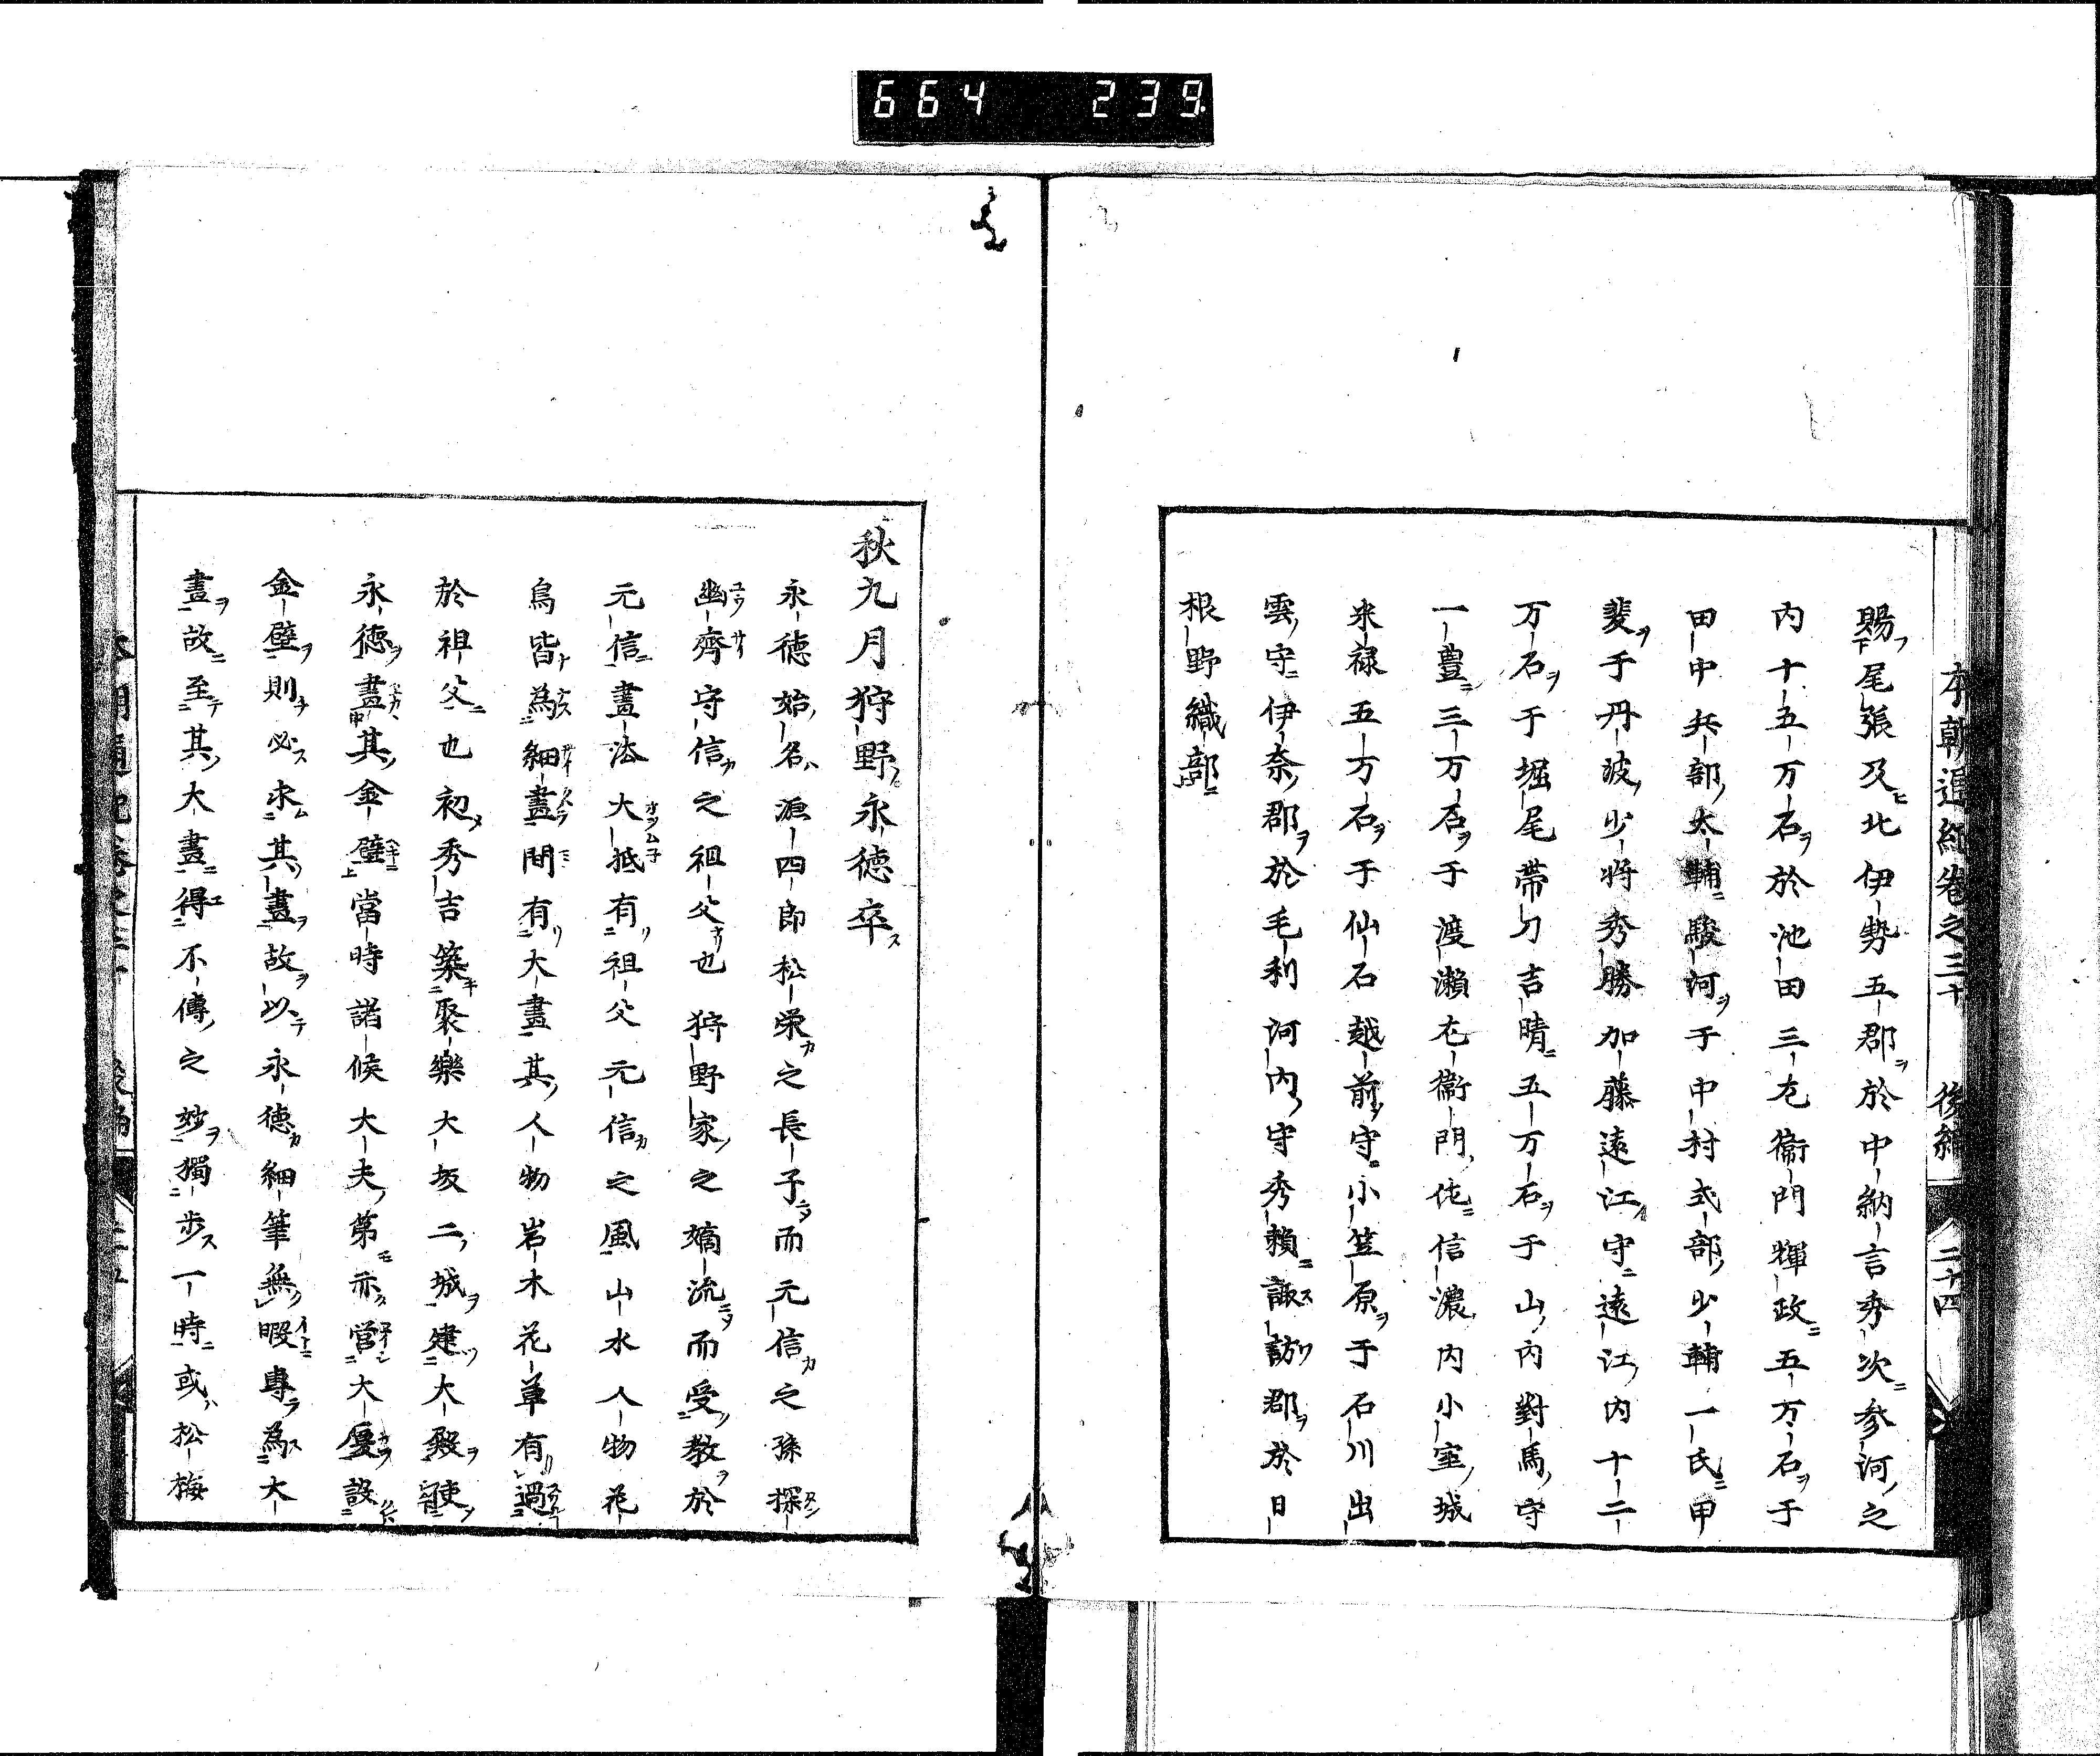 664 239
本朝通紀卷之三十 後編 二十四
賜尾張及北伊勢五郡於中納言秀次參河之
内十五万石於池田三左衛門輝政五万石于
田中兵部太輔駿河于中村式部少輔一氏甲
斐于丹波少將秀勝加藤遠江守遠江内十二
万石于堀尾帶刀吉晴五万石于山内對馬守
一豊三万石于渡瀬左衛門佐信濃内小室城
米禄五万石于仙石越前守小笠原于石川出
雲守伊奈郡於毛利河内守秀頼諏訪郡於日
根野織部
秋九月狩野永徳卒
永徳始名源四郎松栄之長子而元信之孫探
幽齊守信之祖父也狩野家之嫡流而受教於
元信畫法大抵有祖父元信之風山水人物花
鳥皆為細畫間有大畫其人物岩木花草有過
於祖父也初秀吉築聚樂大坂二城建大殿使
永徳畫其金壁當時諸候大夫第亦營大厦設
金壁則必求其畫故以永徳細筆無暇專為大
畫故至其大畫得不傳之妙獨歩一時或松梅